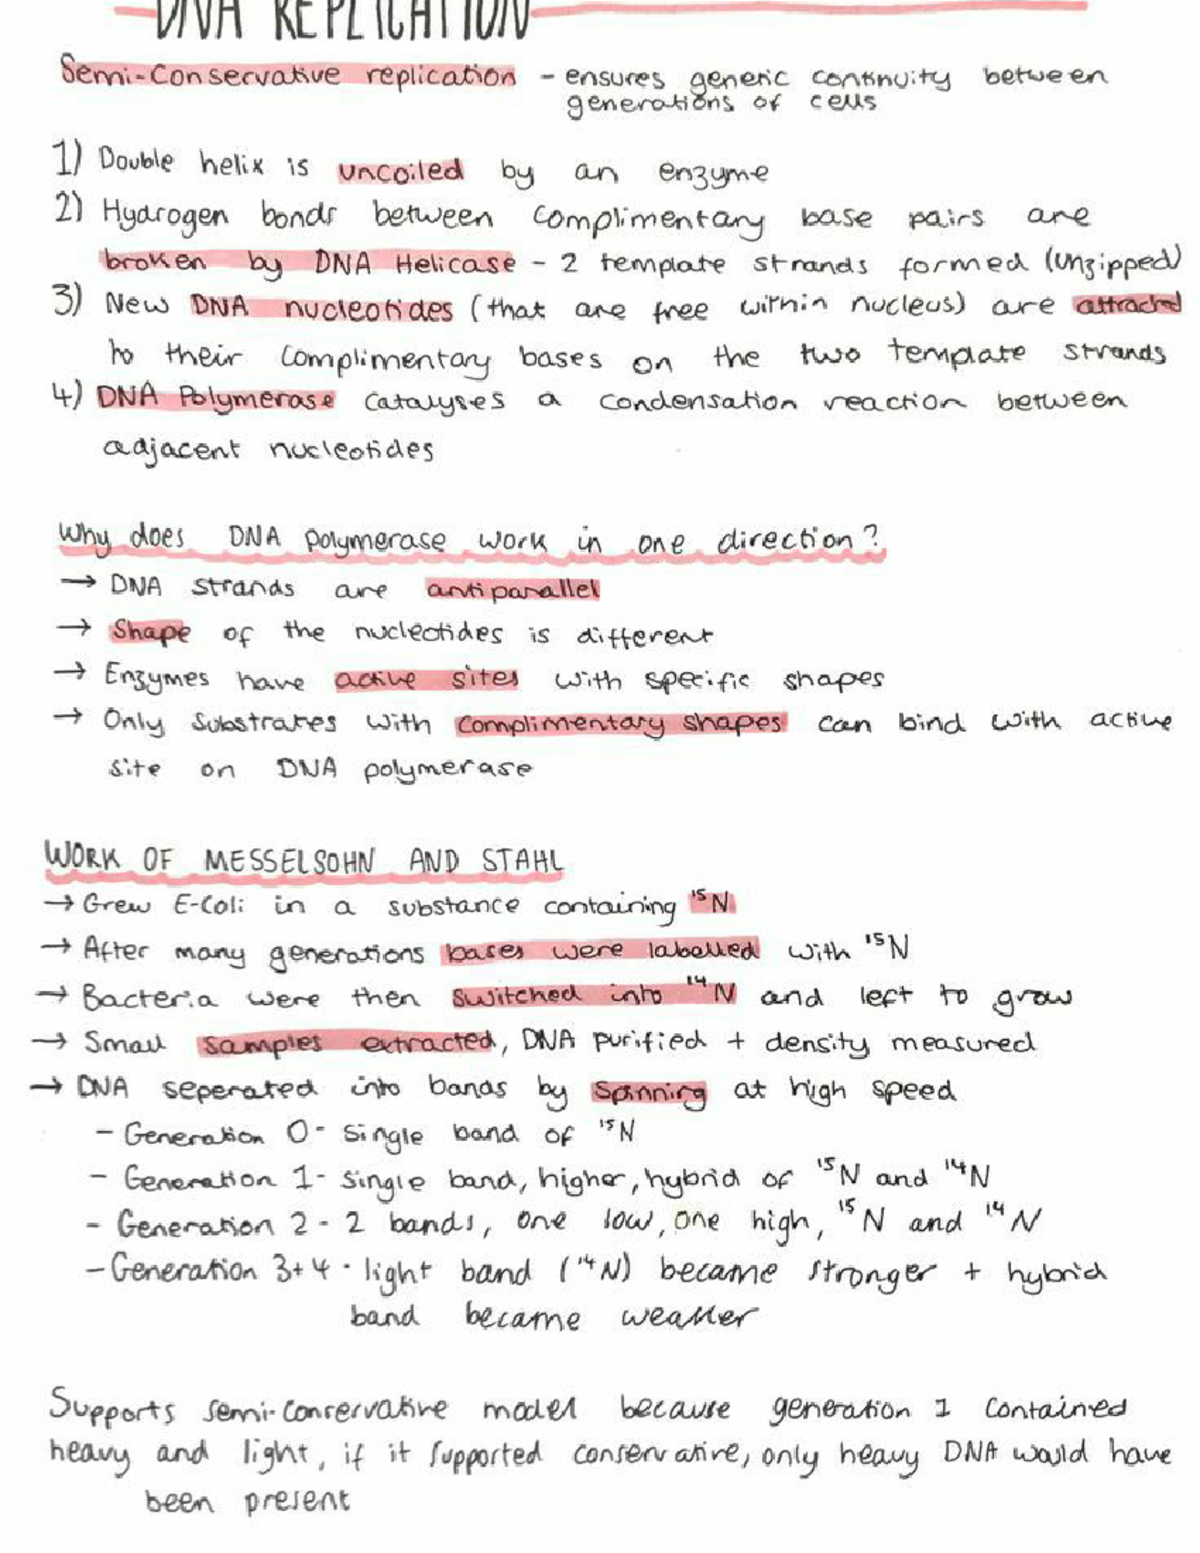 DNA REPLICATION
Semi-Conservative replication - ensures generic continuity between
generations of cells
1) Double helix is uncoiled by an enzyme
2) Hydrogen bonds between complimentary base pairs are
broken by DNA Helicase - 2 template strands formed (unzipped)
3) New DNA nucleotides (that are free within nucleus) are attracted
to their complimentary bases on the two template strands
4) DNA Polymerase catalyses a condensation reaction between
adjacent nucleotides
Why does DNA polymerase work in one direction?
→ DNA strands are antiparallel
→ Shape of the nucleotides is different
→ Enzymes have active sites with specific shapes
→ Only substrates with complimentary shapes can bind with active
site on DNA polymerase
WORK OF MESSELSOHN AND STAHL
→ Grew E-Coli in a substance containing ¹⁵N
→ After many generations bases were labelled with ¹⁵N
→ Bacteria were then switched into ¹⁴N and left to grow
→ Small samples extracted, DNA purified + density measured
→ DNA seperated into bands by spinning at high speed
- Generation 0 - single band of ¹⁵N
- Generation 1 - single band, higher, hybrid of ¹⁵N and ¹⁴N
- Generation 2 - 2 bands, one low, one high, ¹⁵N and ¹⁴N
- Generation 3+4 - light band (¹⁴N) became stronger + hybrid
band became weaker
Supports semi-conservative model because generation 1 contained
heavy and light, if it supported conservative, only heavy DNA would have
been present